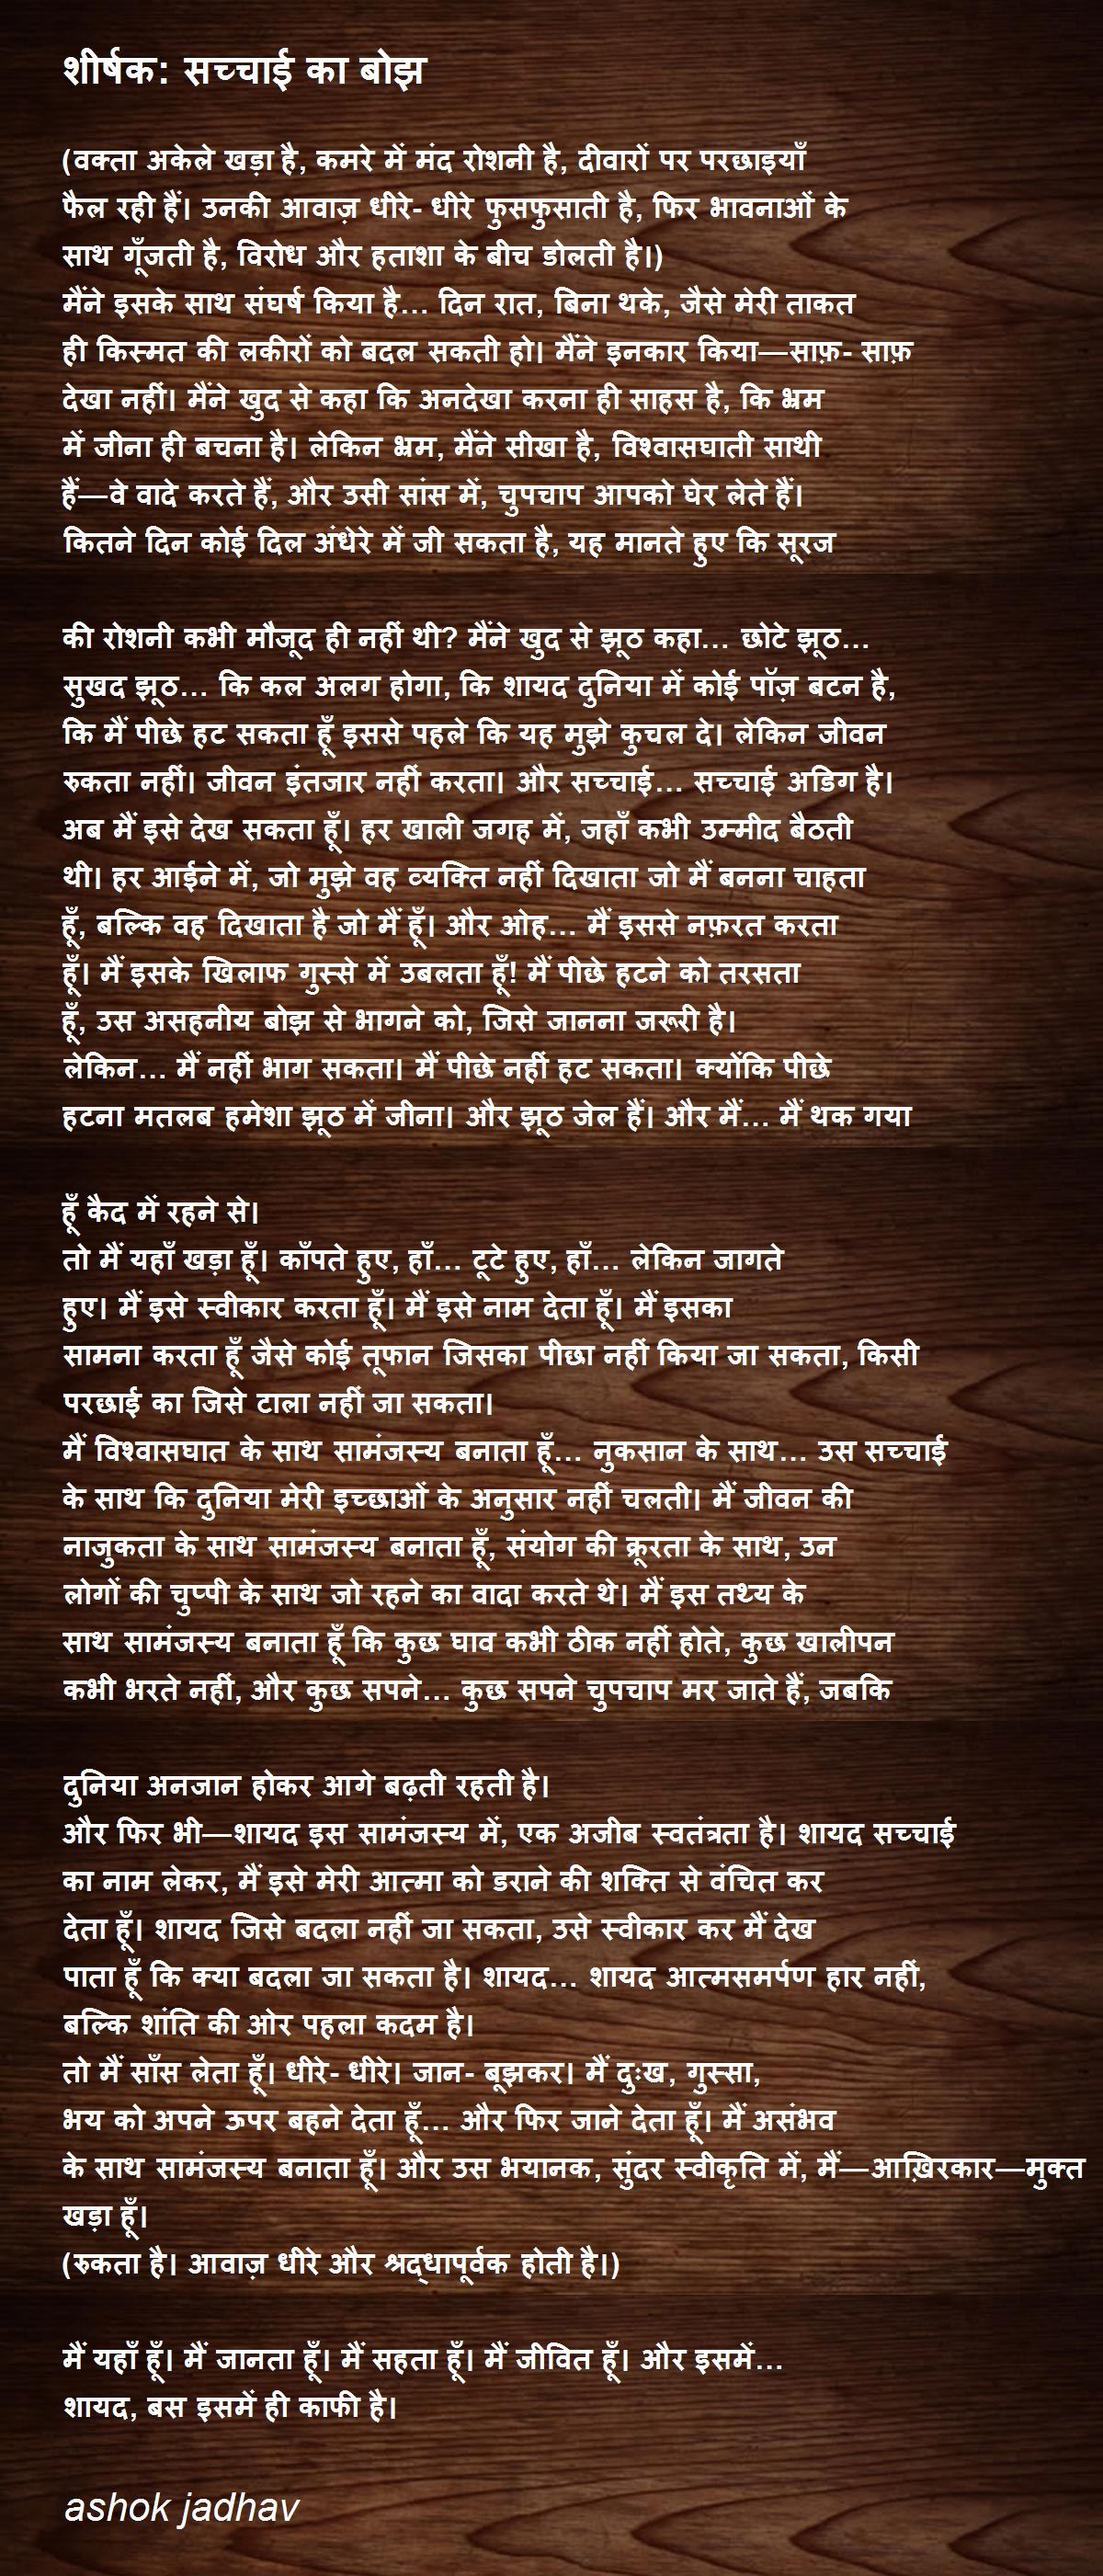 शीर्षक: सच्चाई का बोझ
(वक्ता अकेले खड़ा है, कमरे में मंद रोशनी है, दीवारों पर परछाइयाँ
फैल रही हैं। उनकी आवाज़ धीरे- धीरे फुसफुसाती है, फिर भावनाओं के
साथ गूँजती है, विरोध और हताशा के बीच डोलती है।)
मैंने इसके साथ संघर्ष किया है... दिन रात, बिना थके, जैसे मेरी ताकत
ही किस्मत की लकीरों को बदल सकती हो। मैंने इनकार किया—साफ़- साफ़
देखा नहीं। मैंने खुद से कहा कि अनदेखा करना ही साहस है, कि भ्रम
में जीना ही बचना है। लेकिन भ्रम, मैंने सीखा है, विश्वासघाती साथी
हैं—वे वादे करते हैं, और उसी सांस में, चुपचाप आपको घेर लेते हैं।
कितने दिन कोई दिल अंधेरे में जी सकता है, यह मानते हुए कि सूरज
की रोशनी कभी मौजूद ही नहीं थी? मैंने खुद से झूठ कहा... छोटे झूठ...
सुखद झूठ... कि कल अलग होगा, कि शायद दुनिया में कोई पॉज़ बटन है,
कि मैं पीछे हट सकता हूँ इससे पहले कि यह मुझे कुचल दे। लेकिन जीवन
रुकता नहीं। जीवन इंतजार नहीं करता। और सच्चाई... सच्चाई अडिग है।
अब मैं इसे देख सकता हूँ। हर खाली जगह में, जहाँ कभी उम्मीद बैठती
थी। हर आईने में, जो मुझे वह व्यक्ति नहीं दिखाता जो मैं बनना चाहता
हूँ, बल्कि वह दिखाता है जो मैं हूँ। और ओह... मैं इससे नफ़रत करता
हूँ। मैं इसके खिलाफ गुस्से में उबलता हूँ! मैं पीछे हटने को तरसता
हूँ, उस असहनीय बोझ से भागने को, जिसे जानना जरूरी है।
लेकिन... मैं नहीं भाग सकता। मैं पीछे नहीं हट सकता। क्योंकि पीछे
हटना मतलब हमेशा झूठ में जीना। और झूठ जेल हैं। और मैं... मैं थक गया
हूँ कैद में रहने से।
तो मैं यहाँ खड़ा हूँ। काँपते हुए, हाँ... टूटे हुए, हाँ... लेकिन जागते
हुए। मैं इसे स्वीकार करता हूँ। मैं इसे नाम देता हूँ। मैं इसका
सामना करता हूँ जैसे कोई तूफान जिसका पीछा नहीं किया जा सकता, किसी
परछाई का जिसे टाला नहीं जा सकता।
मैं विश्वासघात के साथ सामंजस्य बनाता हूँ... नुकसान के साथ... उस सच्चाई
के साथ कि दुनिया मेरी इच्छाओं के अनुसार नहीं चलती। मैं जीवन की
नाजुकता के साथ सामंजस्य बनाता हूँ, संयोग की क्रूरता के साथ, उन
लोगों की चुप्पी के साथ जो रहने का वादा करते थे। मैं इस तथ्य के
साथ सामंजस्य बनाता हूँ कि कुछ घाव कभी ठीक नहीं होते, कुछ खालीपन
कभी भरते नहीं, और कुछ सपने... कुछ सपने चुपचाप मर जाते हैं, जबकि
दुनिया अनजान होकर आगे बढ़ती रहती है।
और फिर भी—शायद इस सामंजस्य में, एक अजीब स्वतंत्रता है। शायद सच्चाई
का नाम लेकर, मैं इसे मेरी आत्मा को डराने की शक्ति से वंचित कर
देता हूँ। शायद जिसे बदला नहीं जा सकता, उसे स्वीकार कर मैं देख
पाता हूँ कि क्या बदला जा सकता है। शायद... शायद आत्मसमर्पण हार नहीं,
बल्कि शांति की ओर पहला कदम है।
तो मैं साँस लेता हूँ। धीरे- धीरे। जान- बूझकर। मैं दुःख, गुस्सा,
भय को अपने ऊपर बहने देता हूँ... और फिर जाने देता हूँ। मैं असंभव
के साथ सामंजस्य बनाता हूँ। और उस भयानक, सुंदर स्वीकृति में, मैं—आख़िरकार—मुक्त
खड़ा हूँ।
(रुकता है। आवाज़ धीरे और श्रद्धापूर्वक होती है।)
मैं यहाँ हूँ। मैं जानता हूँ। मैं सहता हूँ। मैं जीवित हूँ। और इसमें...
शायद, बस इसमें ही काफी है।
ashok jadhav